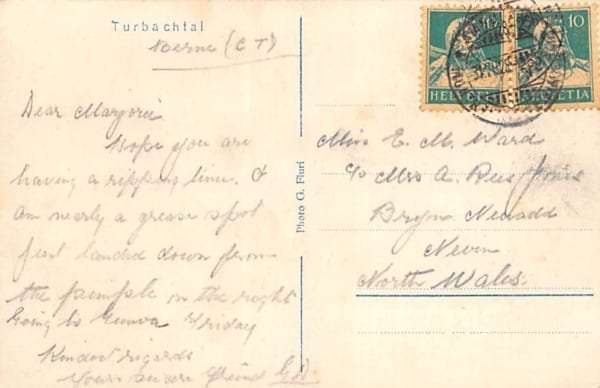 Turbachtal
Berne (CT)
Dear Marjorie
Hope you are
having a ripping time. I
am nearly a grease spot
just landed down from
the pimple on the right
Going to Geneva Friday
Kindest regards
Your sincere friend
Photo G. Fluri
10
HELVETIA HELVETIA
Miss E. M. Ward
c/o Mrs A. Rees Jones
Bryn
Nevin
North Wales.